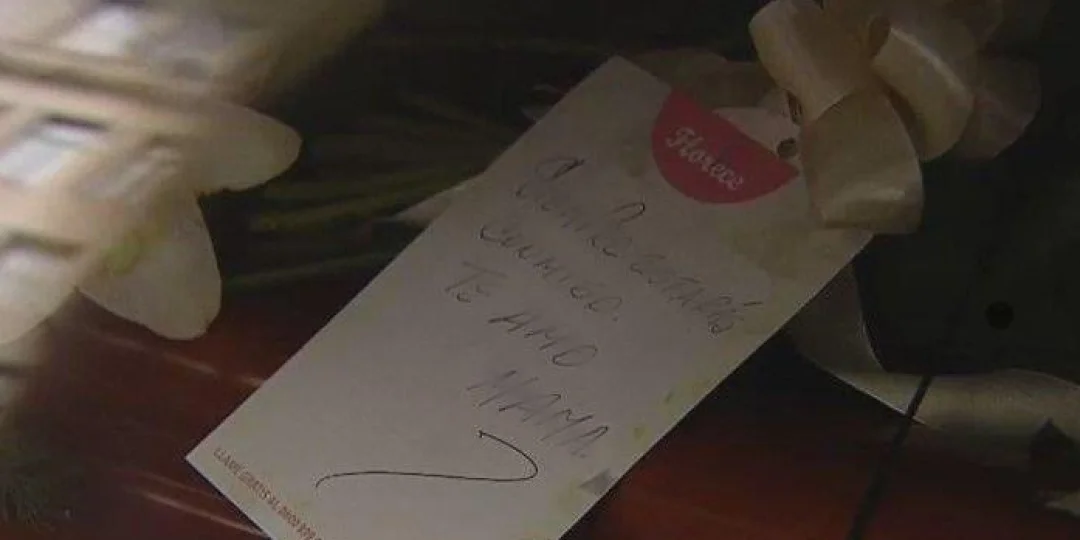 Florece
Siempre estarás
conmigo.
TE AMO
MAMA
LLAME GRATIS AL 0800 879